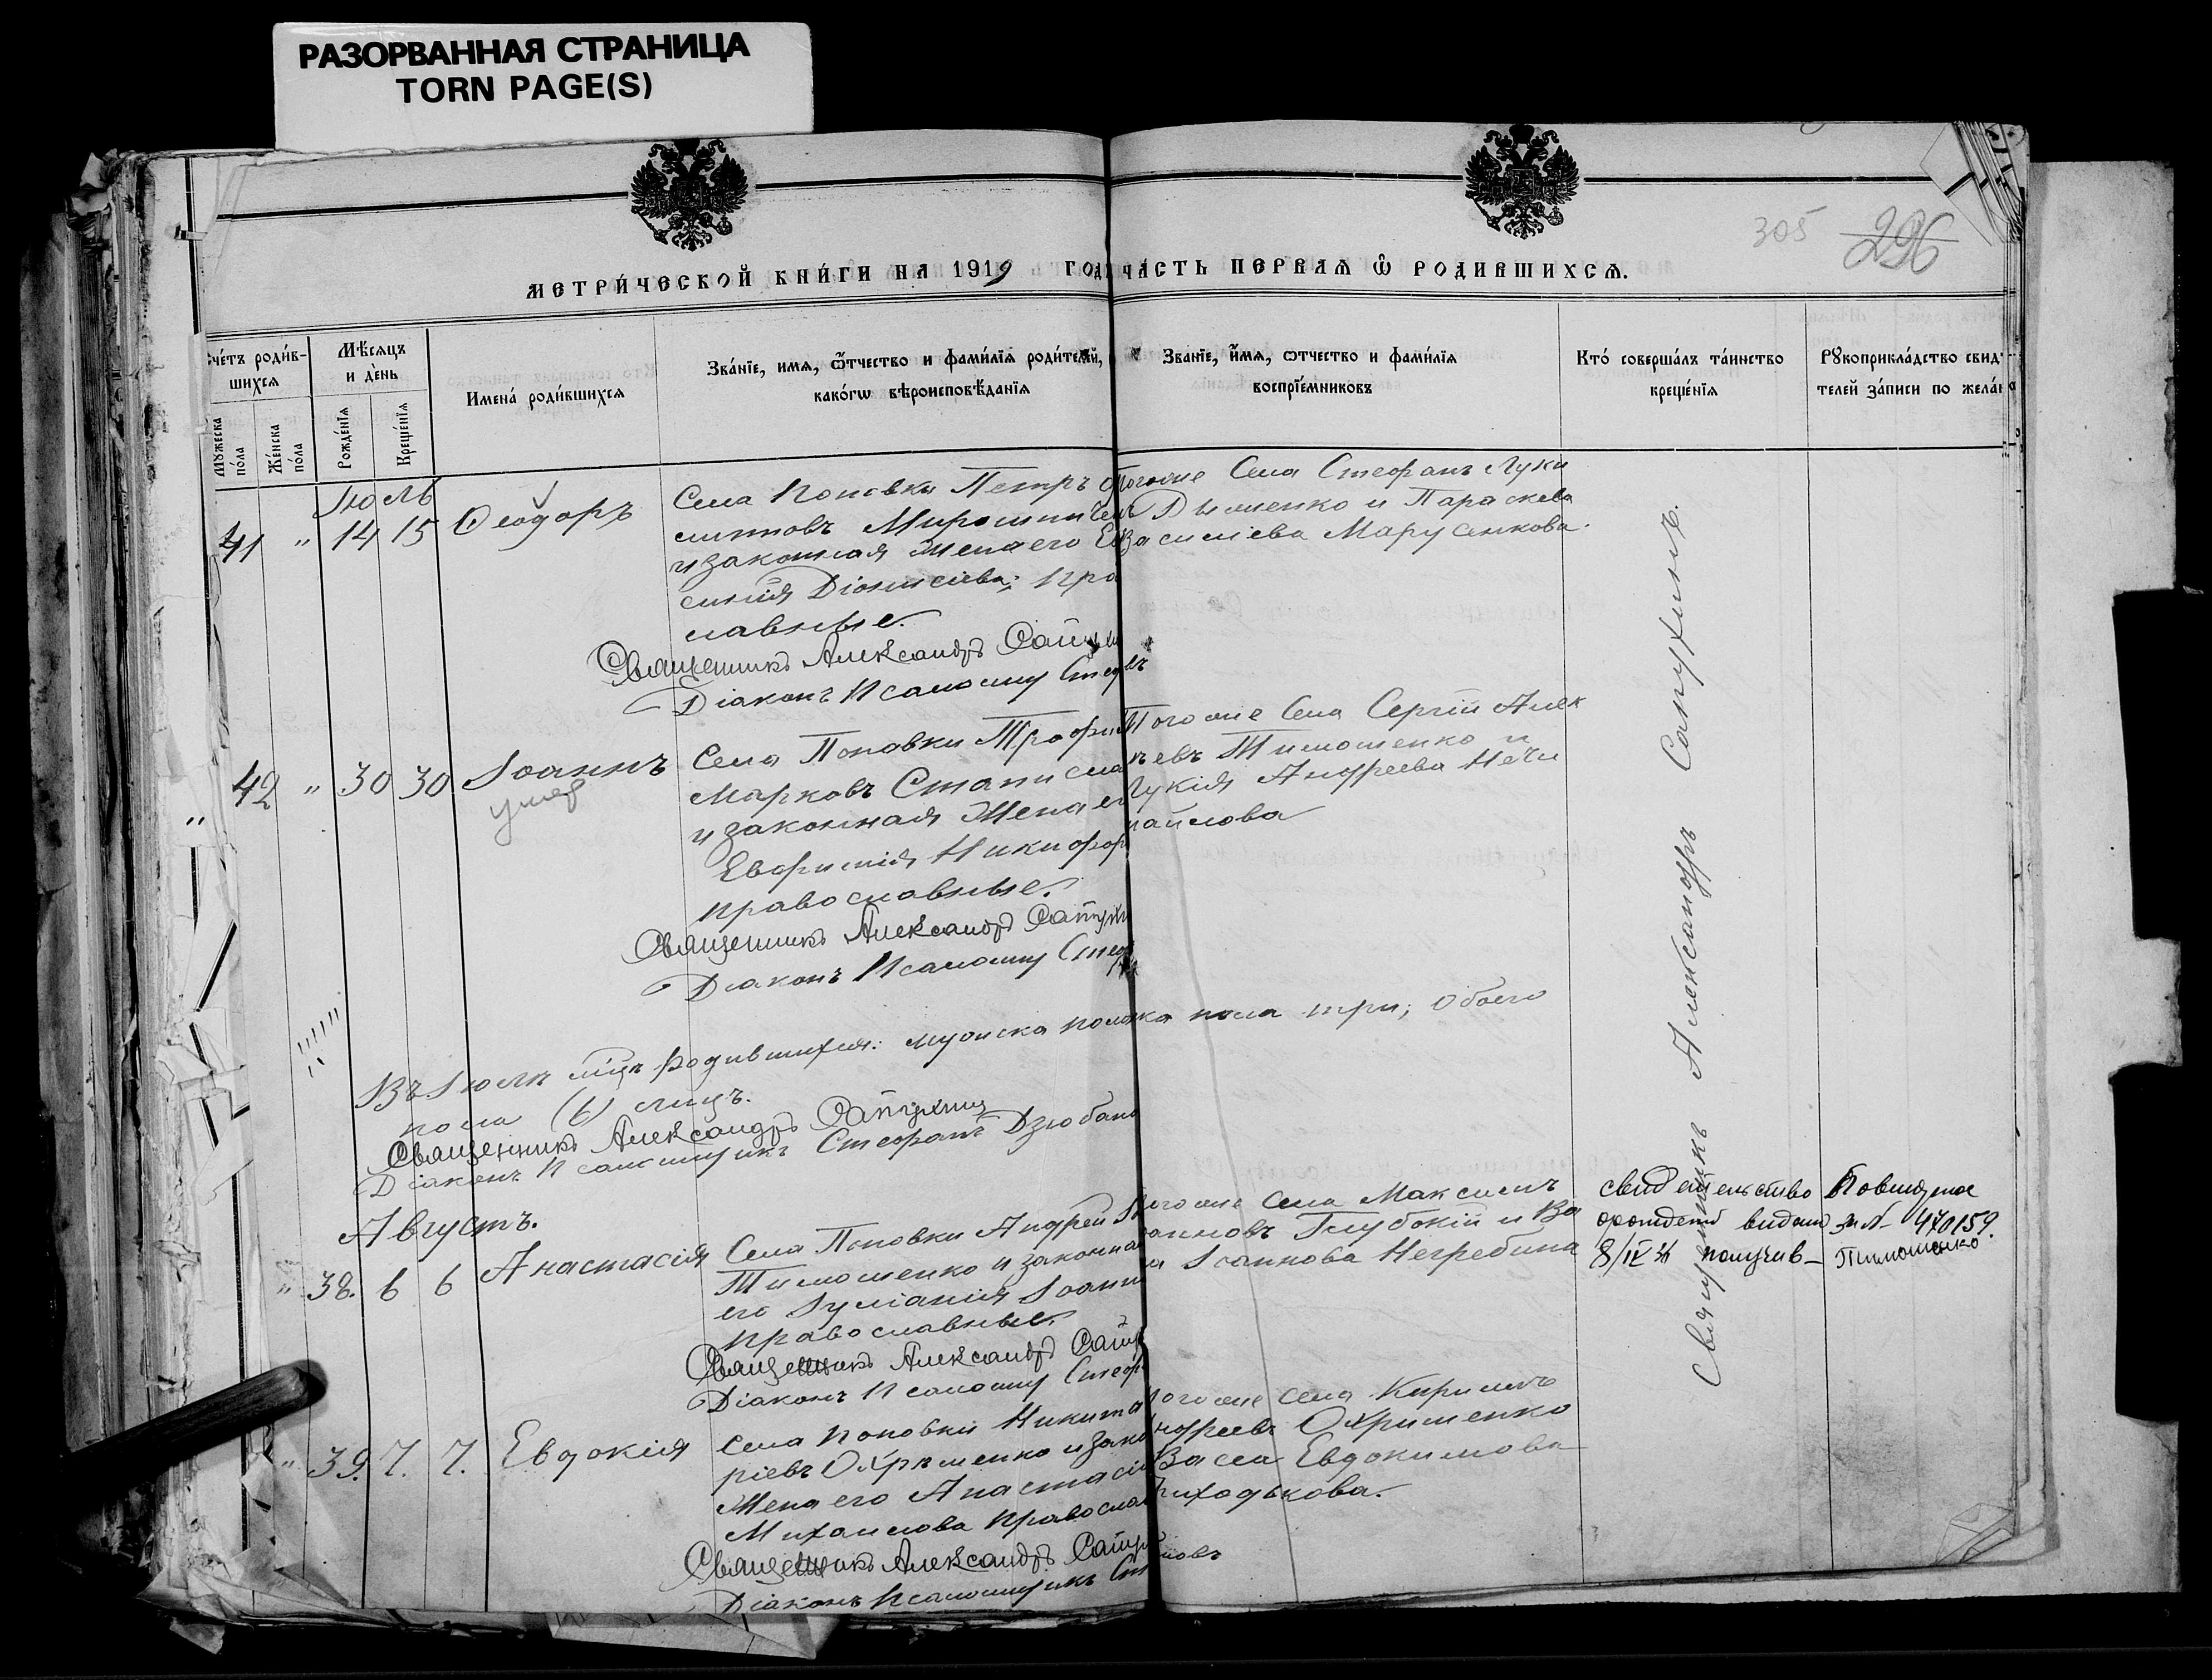 РАЗОРВАННАЯ СТРАНИЦА
TORN PAGE(S)
305 296
МЕТРИ́ЧЕСКОЙ КНИ́ГИ НА 1919 ГОДЪ ЧА́СТЬ ПЕРВАѦ Ѿ РОДИВШИХСѦ.
Сче́тъ роди́в-
шихсѧ
Мꙋжеска по́ла
Же́нска по́ла
Мѣ́сѧцъ и де́нь
Рожде́нїѧ
Креще́нїѧ
Имена́ роди́вшихсѧ
Зва́нїе, имѧ, ѻ҆́тчество и фами́лїѧ роди́телей, и
како́гѡ вѣроисповѣ́данїѧ
Зва́нїе, и҆́мѧ, ѻтчество и фами́лїѧ
воспрїе́мниковъ
Кто́ соверша́лъ та́инство
креще́нїѧ
Рꙋкоприкла́дство свид
телей за́писи по жела́н
Іюль
41 " 14 15 Ѳеодоръ
Села Поповки Петръ
иипповъ Мирошниче
и законная жена его Ев
Діонисіева; пра
славные.
Священникъ Александръ Сапух
Діаконъ Псаломщ Стеф
Тогоже Села Стефанъ Луки
Дышенко и Параскева
Василіева Марусенкова.
42 " 30 30 Іоаннъ
умер
Села Поповки Трофи
Марковъ Станисла
и законная Жена ег
Евфимія Никифор
православные.
Священникъ Александръ Сапухи
Діаконъ Псаломщ Стеф
Тогоже Села Сергій Алек
евъ Тимошенко и
Лукія Андреева Нечи
айлова
Въ Іюлѣ м͠цѣ родившихся: мужска пола ка пола три; обоего
пола (6) лицъ.
Священникъ Александръ Сапухинъ
Діаконъ Псаломщикъ Стефанъ Дзюбано
Августъ.
" 38. 6 6 Анастасія
Села Поповки Андрей
Тимошенко и законна
его Іуліанія Іоанн
православные.
Священникъ Александръ Сапу
Діаконъ Псаломщ Стеф
Тогоже Села Максимъ
оанновъ Глубокій и Ва
а Іоаннова Негребина
свидетельство
орождений видано
8/IX получив-
По
за № 470159.
Тимошенко
" 39. 7. 7. Евдокія
Села Поповки Никита
ріевъ Охрименко и зако
Жена его Анастасі
Михаилова Правосла
Священникъ Александръ Сапу
Діаконъ Псаломщикъ Ст новъ
тогоже Села Кириллъ
ндреевъ Охрименко
Васса Евдокимова
иходькова.
Священникъ Александръ Сапухинъ.